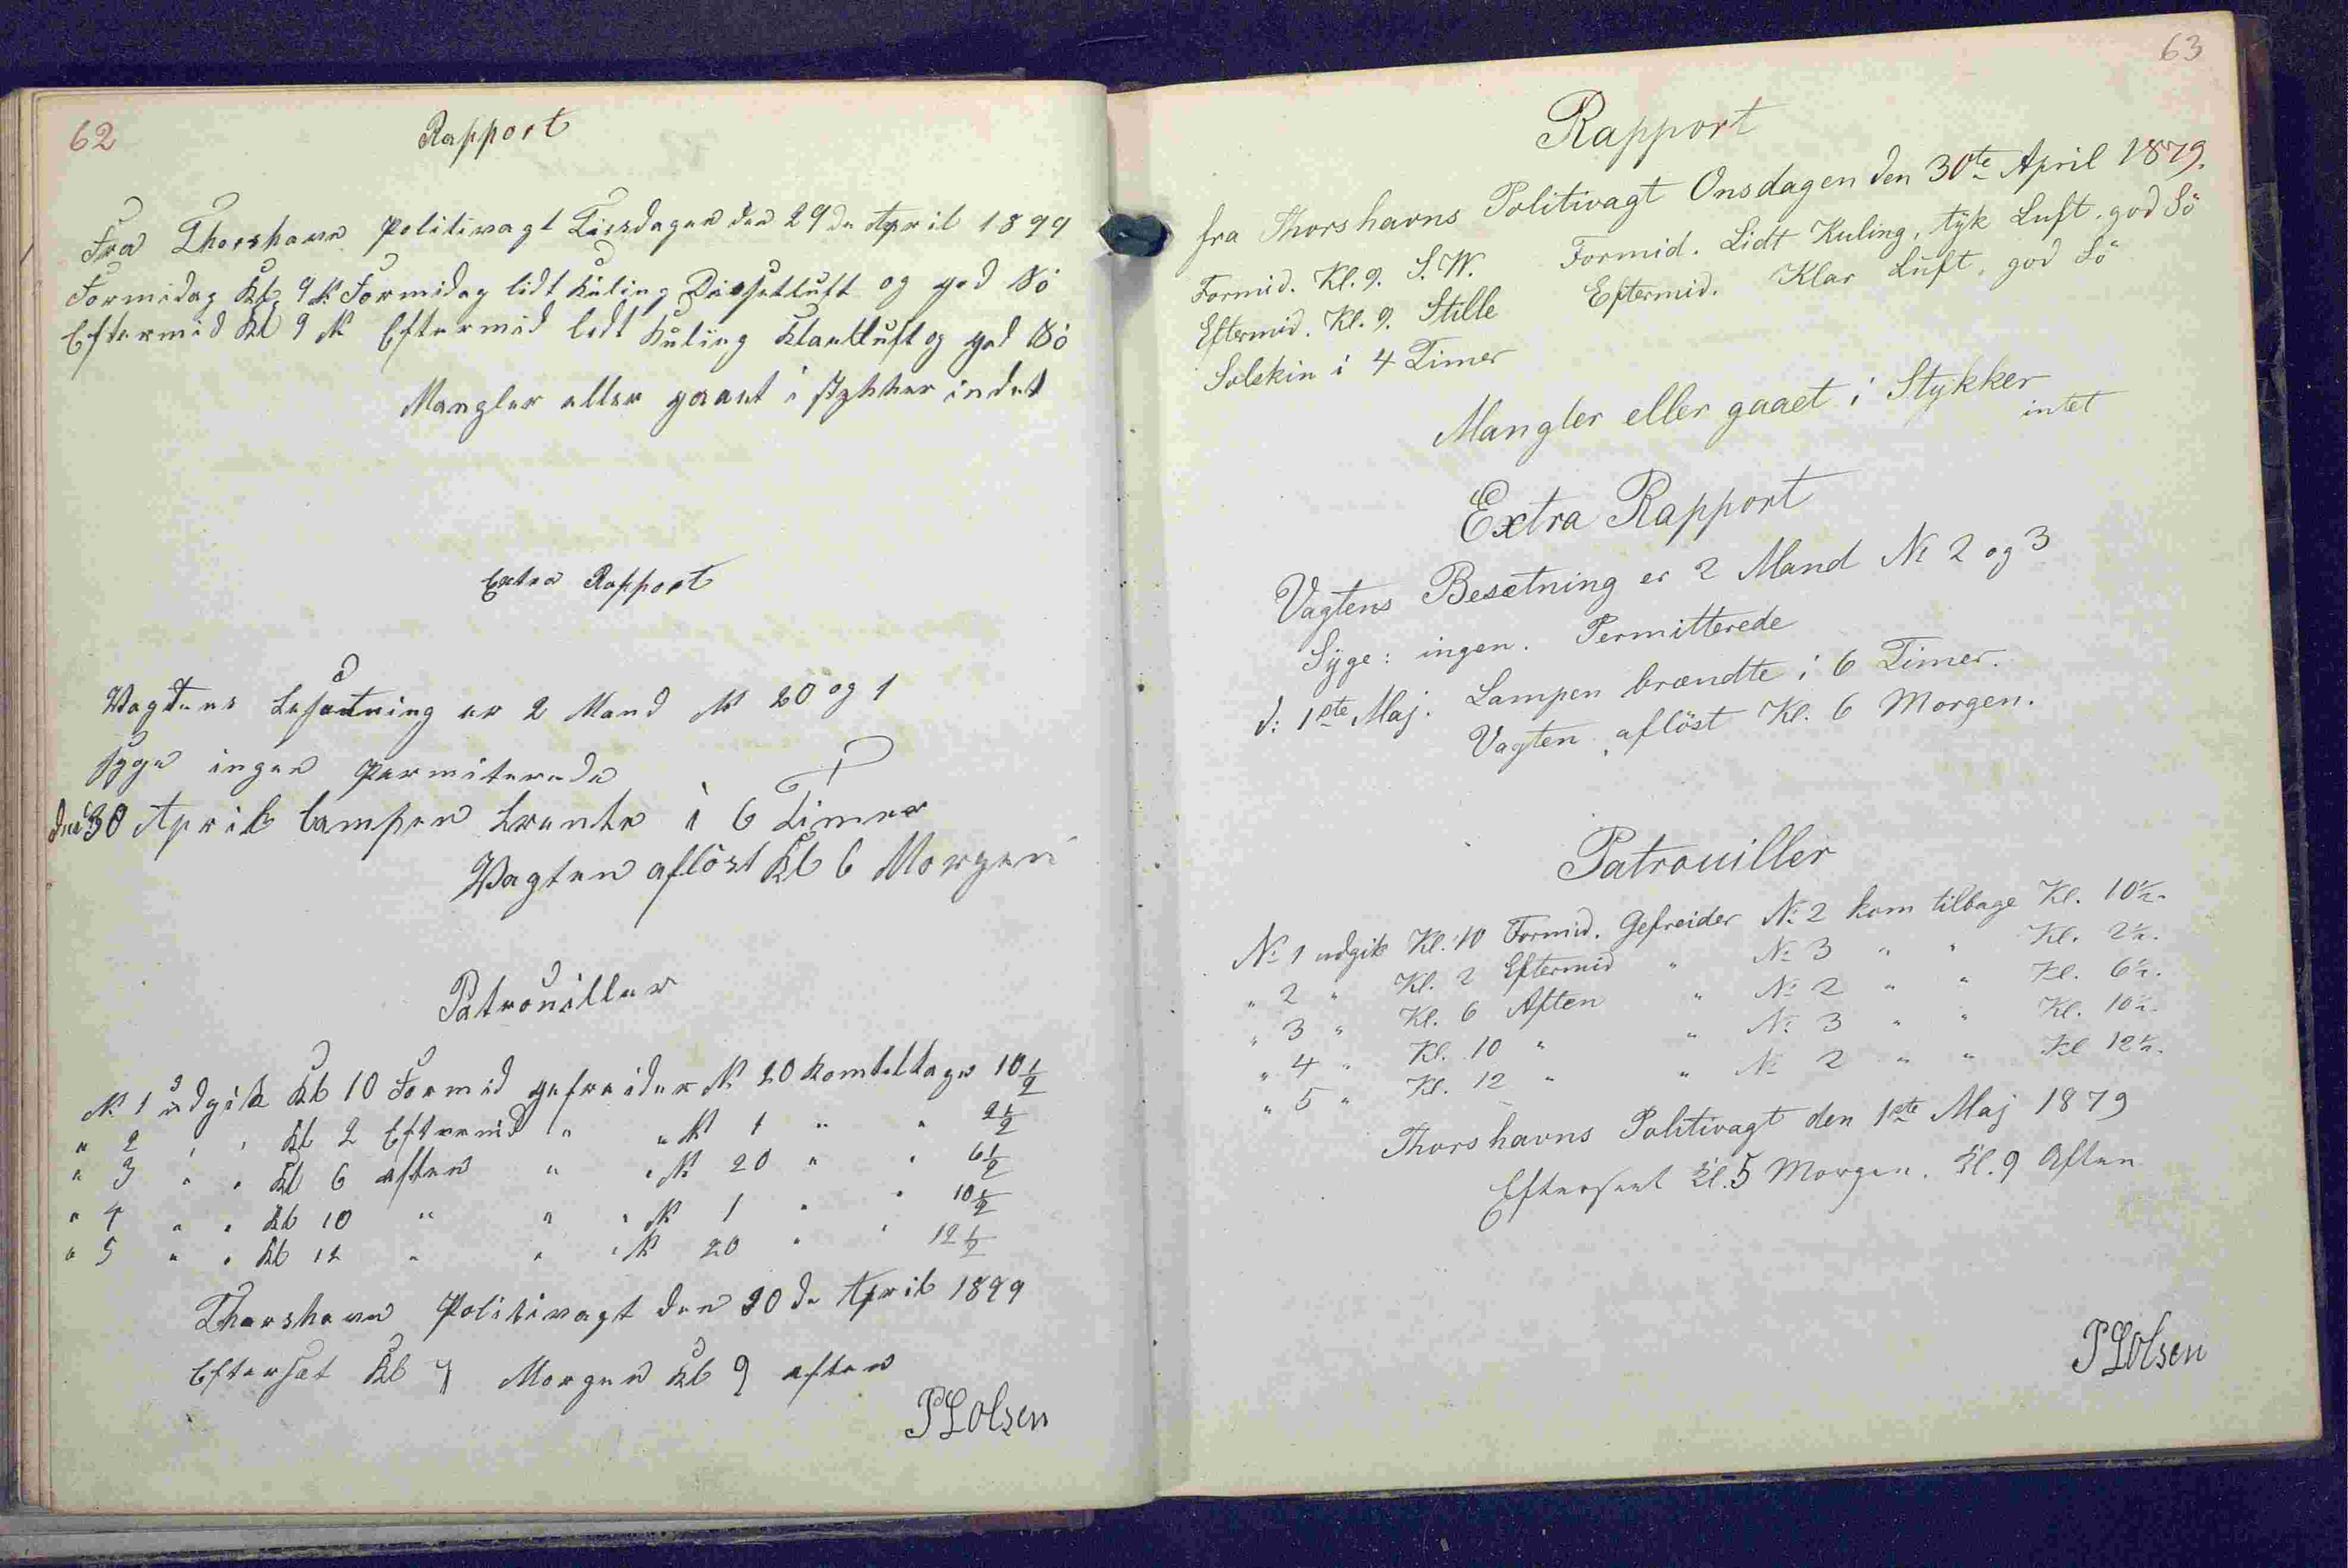 62
Rapport
Fra Thorshavn Politivagt Tirsdagen den 29de April 1879
Formidag Kl 9 N. Formidag lidt Kuling Diesetluft og god Sö
Eftermid Kl 9 N Eftermid lidt Kuling Klarluft og god Sö
Mangler eller gaaet i stykker indet
Extra Rapport
Vagtens besatning er 2 Mand N 20 og 1
syge ingen permiterede
den 30 April lampen brente i 6 Timer
Vagten aflöst Kl 6 Morgen
Patrouiller
N. 1 udgik Kl 10 Formid gefreider N 20 kom tilbage 10 1/2
" 2 " " Kl 2 Eftermid " " N 1 " " 2 1/2
" 3 " " Kl 6 aften " " N 20 " " 6 1/2
" 4 " " Kl 10 " " " N 1 " " 10 1/2
" 5 " " Kl 12 " " " N 20 " " 12 1/2
Thorshavn Politivagt den 30de April 1879
Eftersat Kl Morgen Kl 9 aften
P L Olsen
63
Rapport
fra Thorshavns Politivagt Onsdagen den 30te April 1879.
Formid. Kl. 9. S.W. Formid. Lidt Kuling, tÿk Luft. god Sö
Eftermid. Kl. 9. Stille Eftermid. Klar Luft, god Sö
Solskin i 4 Timer
Mangler eller gaaet i Stykker
intet
Extra Rapport
Vagtens Besætning er 2 Mand No 2 og 3
Sÿge: ingen. Permitterede
d: 1ste Maj. Lampen brændte i 6 Timer.
Vagten aflöst Kl. 6 Morgen.
Patrouiller
No 1 udgik Kl. 10 Formid. Gefreider No 2 kom tilbage Kl. 10 1/2.
" 2 " Kl. 2 Eftermid " No 3 " " Kl. 2 1/2.
" 3 " Kl. 6 Aften " No 2 " " Kl. 6 1/2.
" 4 " Kl. 10 " " No 3 " " Kl. 10 1/2.
" 5 " Kl. 12 " " No 2 " " Kl 12 1/2.
Thorshavns Politivagt den 1ste Maj 1879
Efterseet Kl. 5 Morgen. Kl. 9 Aften
P L Olsen